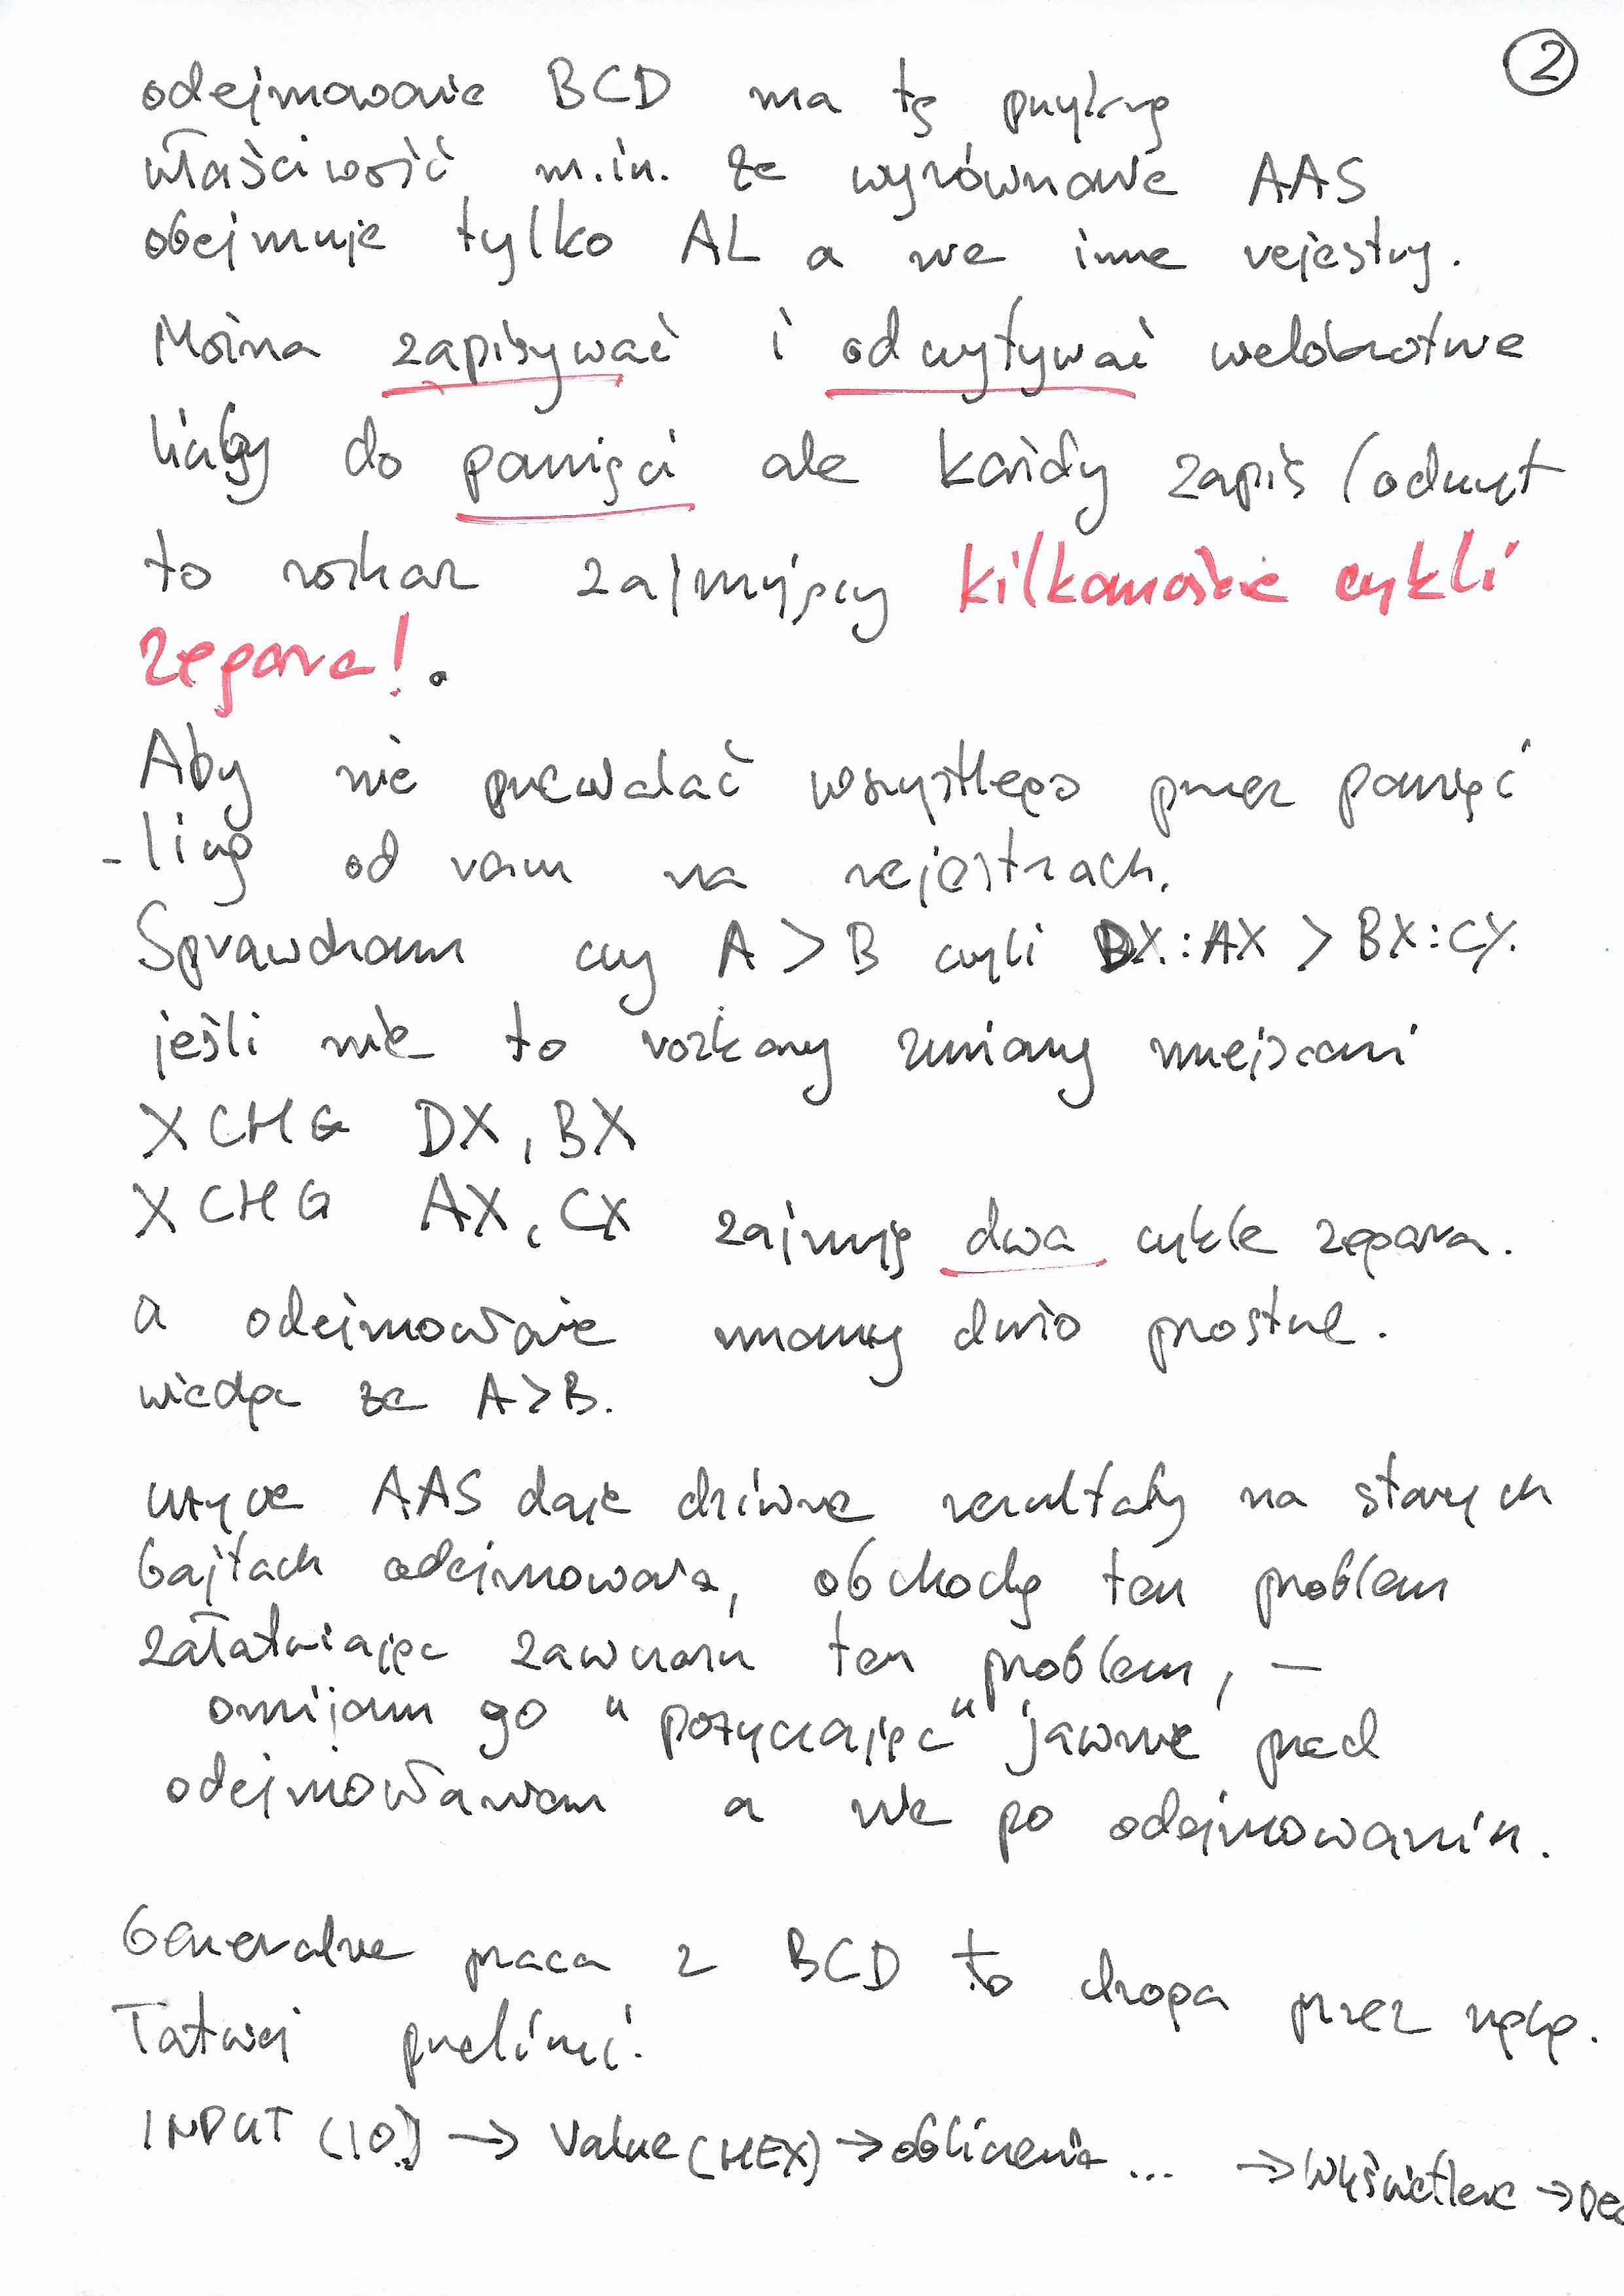 2
odejmowanie BCD ma tę przykrą
właściwość m.in. że wyrównanie AAS
obejmuje tylko AL a nie inne rejestry.
Można zapisywać i odczytywać wielokrotnie
liczby do pamięci ale każdy zapis/odczyt
to rozkaz zajmujący kilkanaście cykli
zegara!.
Aby nie przewalać wszystkiego przez pamięć
- liczę od razu na rejestrach.
Sprawdzam czy A > B czyli DX:AX > BX:CX.
jeśli nie to rozkazy zmiany miejscami
XCHG DX, BX
XCHG AX, CX zajmują dwa cykle zegara.
a odejmowanie mamy dużo prostsze.
wiedząc że A>B.
użycie AAS daje dziwne rezultaty na starszych
bajtach odejmowania, obchodzę ten problem
załatwiając zawczasu ten problem, -
omijam go "pożyczając" jawnie przed
odejmowaniem a nie po odejmowaniu.
Generalnie praca z BCD to droga przez mękę.
Łatwiej przeliczyć.
INPUT (10) → Value (HEX) → obliczenia ... → Wyświetlenie → Dec